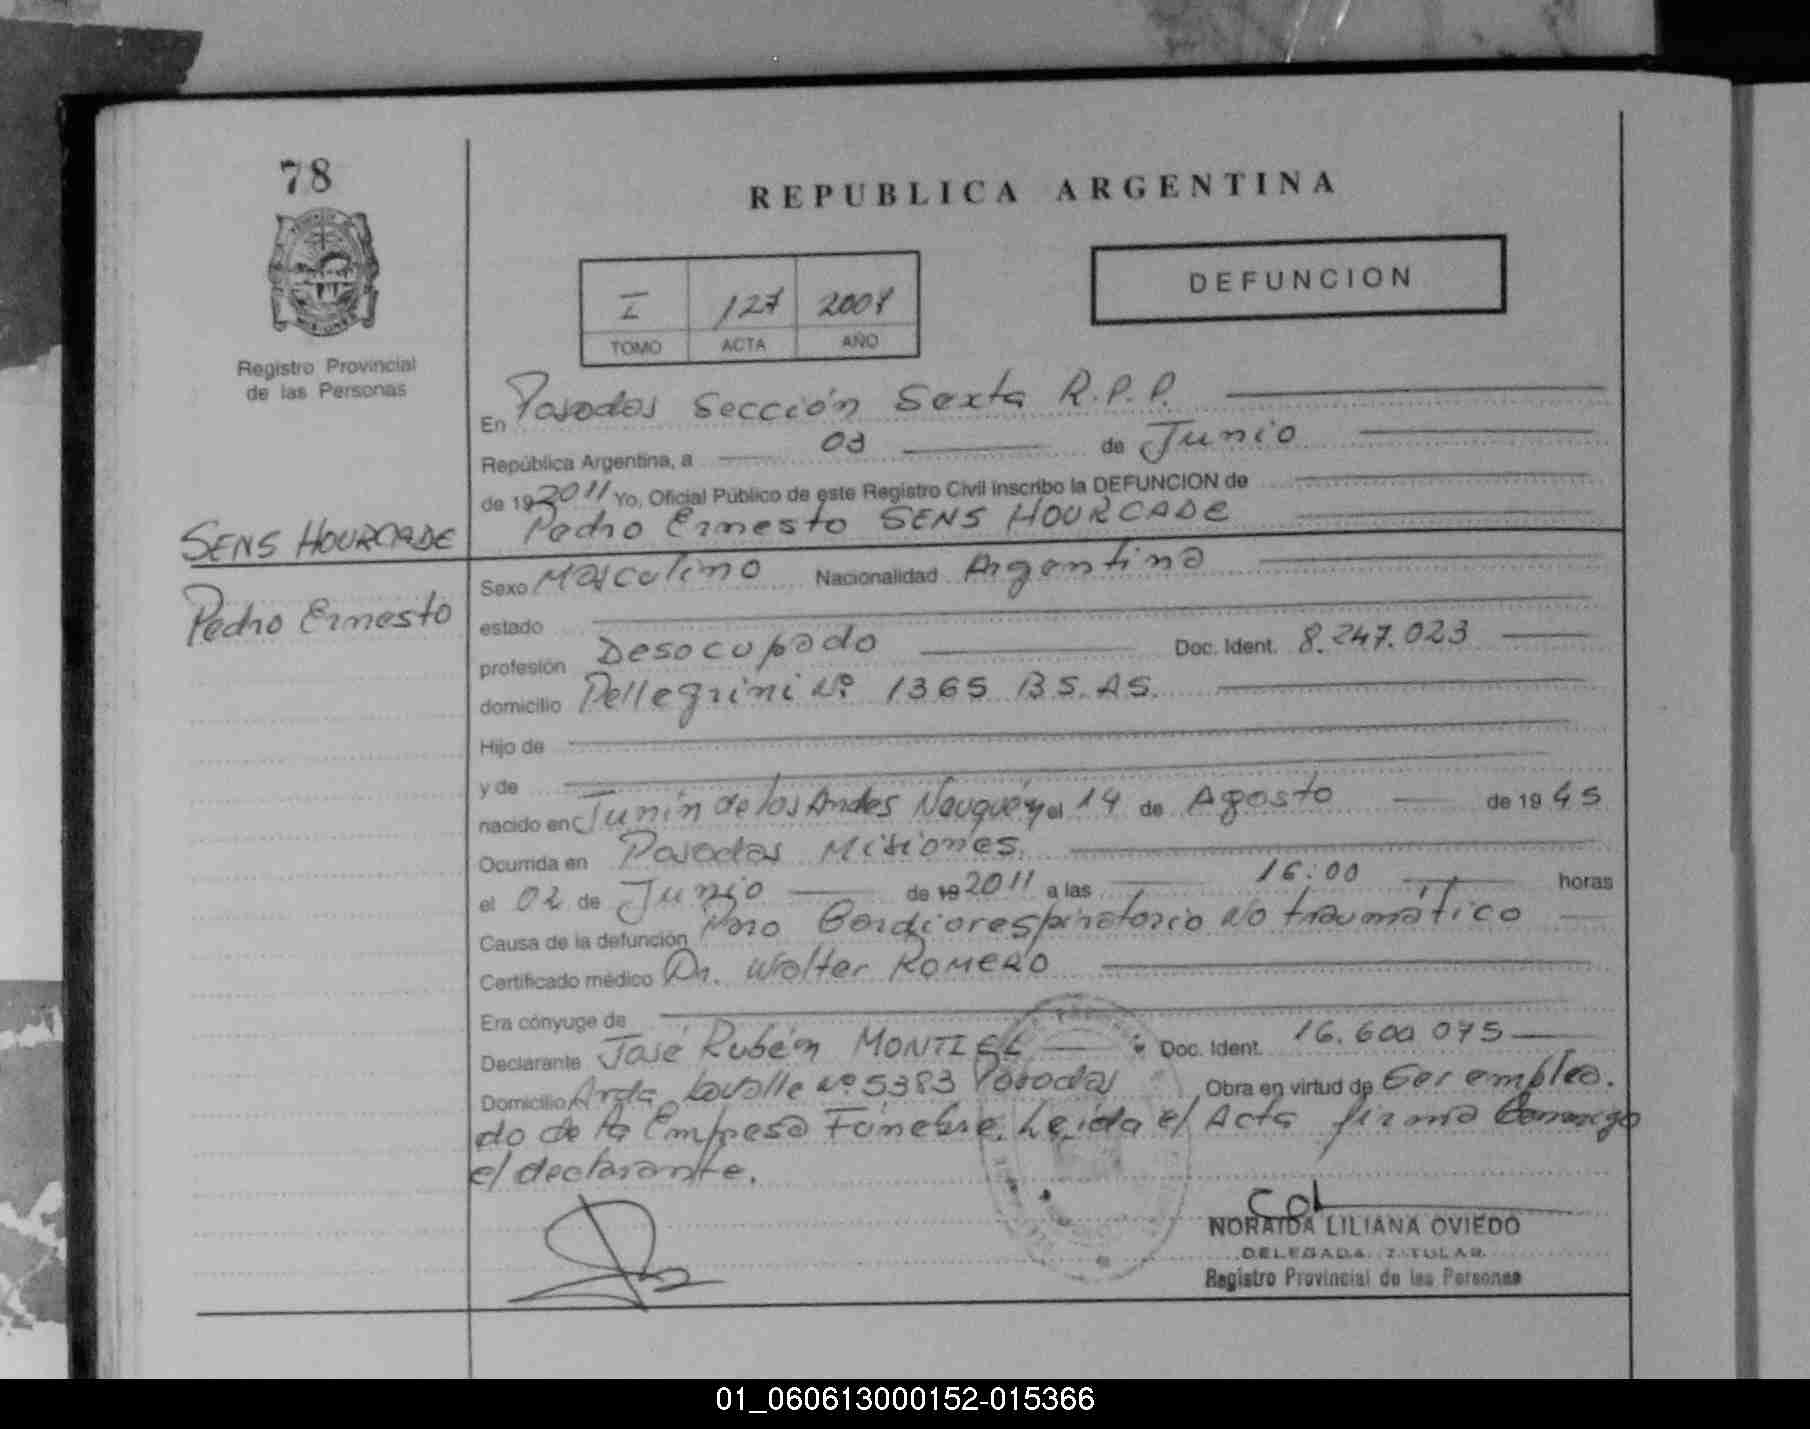 78
REPUBLICA ARGENTINA
DEFUNCION
I 127
TOMO ACTA AÑO
Registro Provincial
de las Personas
En Posadas Sección Sexta R.P.P.
República Argentina, a 03 de Junio
de 19 2011 Yo, Oficial Público de este Registro Civil inscribo la DEFUNCION de
Pedro Ernesto SENS HOURCADE
SENS HOURCADE
Pedro Ernesto
Sexo Masculino Nacionalidad Argentina
estado
profesión Desocupado Doc. Ident. 8.247.023
domicilio Pellegrini Nº 1365 BS.AS.
Hijo de
y de
nacido en Junín de los Andes Neuquén el 14 de Agosto de 19 45
Ocurrida en Posadas Misiones.
el 02 de Junio de 19 2011 a las 16:00 horas
Causa de la defunción Paro Cardiorespiratorio No traumático
Certificado médico Dr. Walter ROMERO
Era cónyuge de
Declarante José Rubén MONTIEL Doc. Ident. 16.600.075
Domicilio Avda Lavalle Nº 5383 Posadas Obra en virtud de Ser emplea.
do de la Empresa Fúnebre. Leída el Acta firma Conmigo
el declarante.
NORAIDA LILIANA OVIEDO
DELEGADA TITULAR
Registro Provincial de las Personas
01_060613000152-015366